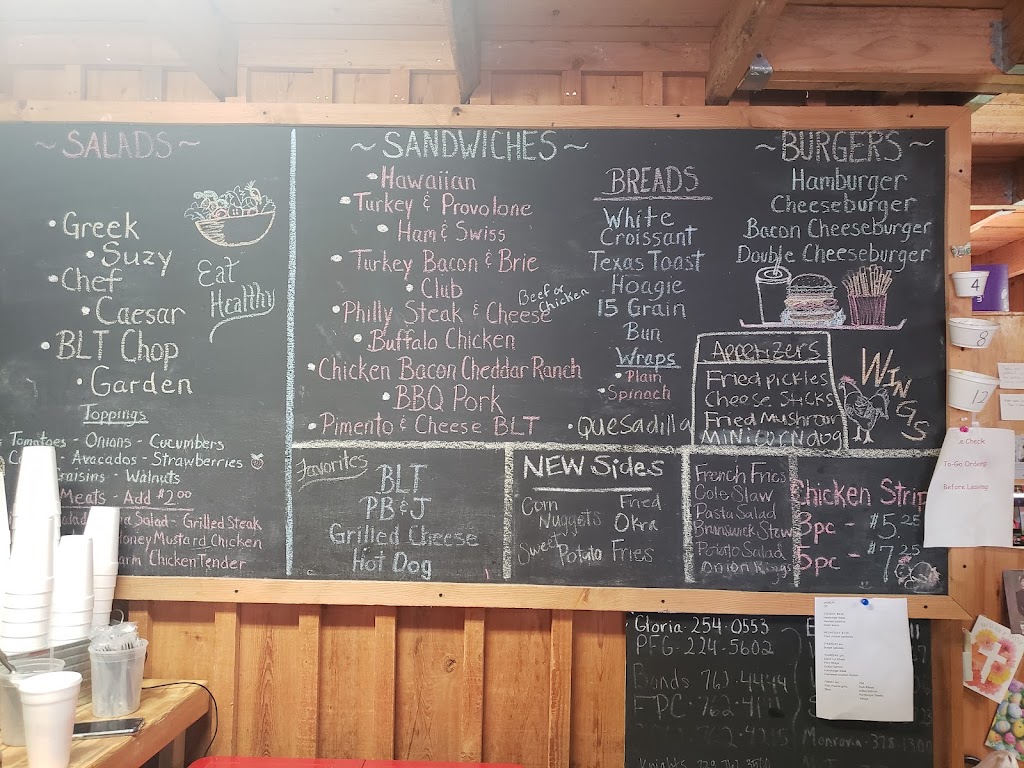 ~SALADS~
• Greek
• Suzy
• Chef
• Caesar
• BLT Chop
• Garden
Eat
Healthy
Toppings
Tomatoes - Onions - Cucumbers
Avocados - Strawberries
Raisins - Walnuts
Meats - Add $2.00
Salad - Grilled Steak
Honey Mustard Chicken
Chicken Tender
~SANDWICHES~
• Hawaiian
• Turkey & Provolone
• Ham & Swiss
• Turkey Bacon & Brie
• Club
• Philly Steak & Cheese
Beef or
Chicken
• Buffalo Chicken
• Chicken Bacon Cheddar Ranch
• BBQ Pork
• Pimento & Cheese BLT
• Quesadilla
BREADS
White
Croissant
Texas Toast
Hoagie
15 Grain
Bun
Wraps
• Plain
• Spinach
~BURGERS~
Hamburger
Cheeseburger
Bacon Cheeseburger
Double Cheeseburger
Appetizers
Fried pickles
Cheese Sticks
Fried Mushroom
Mini corndog
WINGS
4
8
12
Favorites
BLT
PB&J
Grilled Cheese
Hot Dog
NEW Sides
Corn
Nuggets
Fried
Okra
Sweet Potato Fries
French Fries
Cole Slaw
Pasta Salad
Brunswick Stew
Potato Salad
Onion Rings
Chicken Strip
3pc - $5.25
5pc - $7.25
Check
To-Go Orders
Before Leaving
Gloria 254-0553
PFG-224-5602
Bonds 763-4444
Monrovia-378-1300